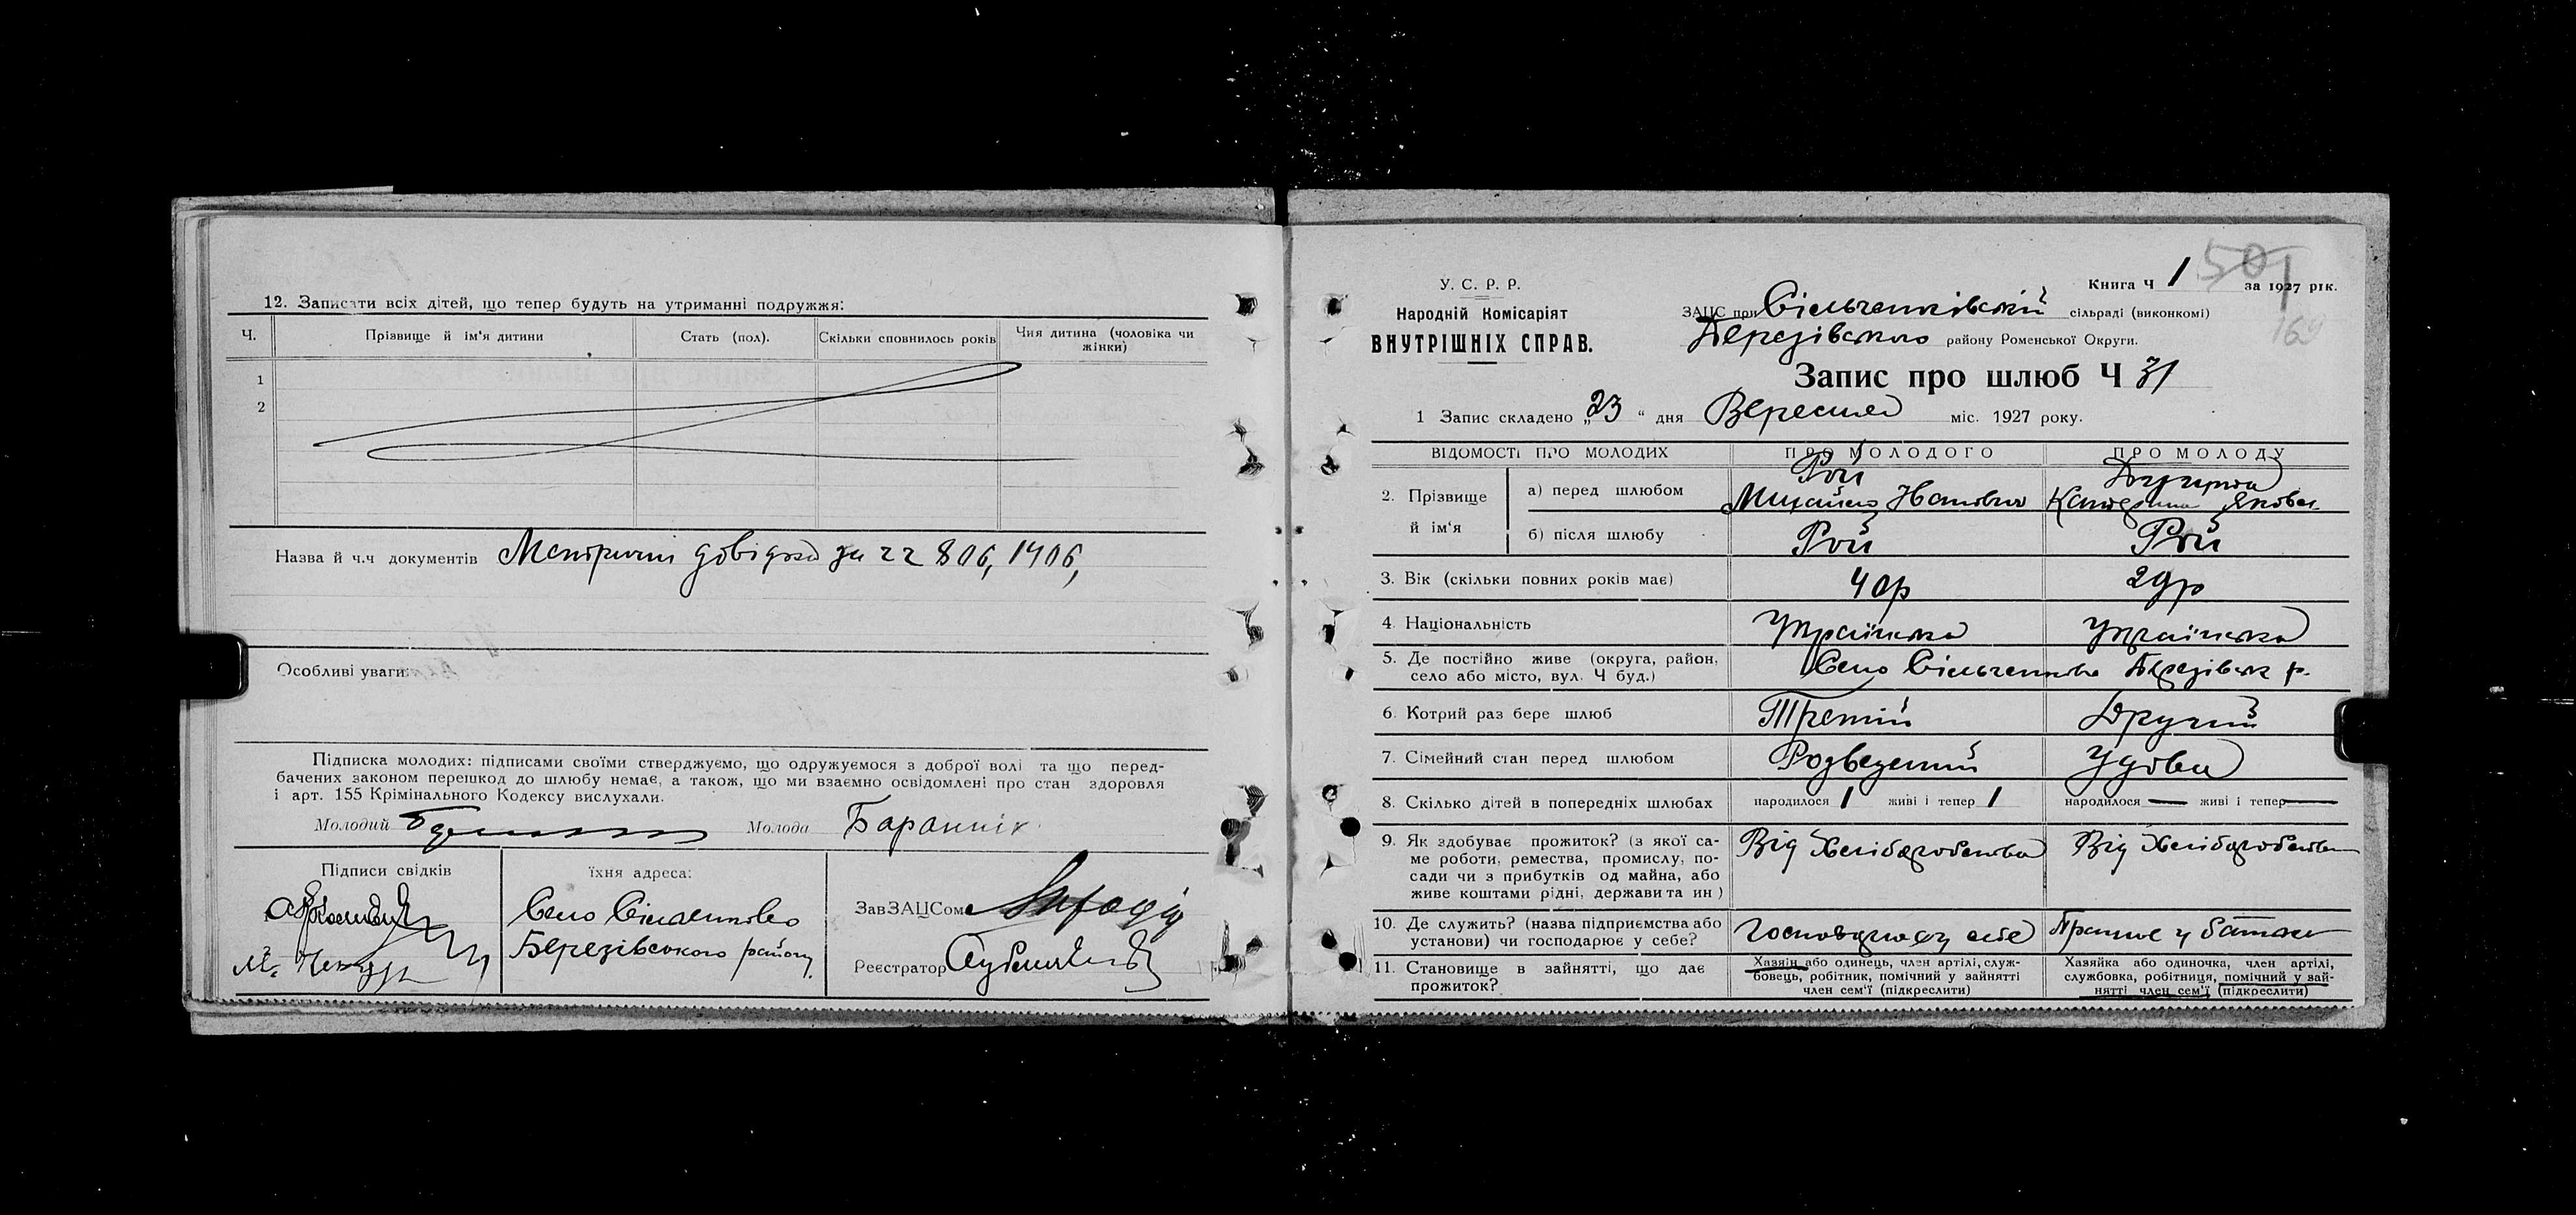 12. Записати всіх дітей, що тепер будуть на утриманні подружжя:
Ч. Прізвище й ім'я дитини Стать (пол). Скільки сповнилось років Чия дитина (чоловіка чи жінки)
1
2
Назва й ч.ч документів Метричні довідки за 806, 1906,
Особливі уваги
Підписка молодих: підписами своїми стверджуємо, що одружуємося з доброї волі та що перед-
бачених законом перешкод до шлюбу немає, а також, що ми взаємно освідомлені про стан здоровля
і арт. 155 Крімінального Кодексу вислухали.
Молодий Молода Баранник
Підписи свідків їхня адреса:
Село Сільченково
Березівського району
ЗавЗАЦСом
Реєстратор
У. С. Р. Р.
Народній Комісаріят
ВНУТРІШНІХ СПРАВ.
Книга Ч 1 за 1927 рік.
501
169
ЗАЦС при Сільченківській сільраді (виконкомі)
Березівського району Роменської Округи.
Запис про шлюб Ч 31
1 Запис складено „23 “ дня Вересня міс. 1927 року.
ВІДОМОСТІ ПРО МОЛОДИХ ПРО МОЛОДОГО ПРО МОЛОДУ
2. Прізвище й ім'я
а) перед шлюбом Рой Михайло Іванович Катерина Яковл
б) після шлюбу Рой Рой
3. Вік (скільки повних років має) 40р 29р
4. Національність Українська Українська
5. Де постійно живе (округа, район,
село або місто, вул. Ч буд.) Село Сільченково Березівськ р.
6. Котрий раз бере шлюб Третій Другий
7. Сімейний стан перед шлюбом Розведений Удова
8. Скілько дітей в попередніх шлюбах народилося 1 живі і тепер 1 народилося — живі і тепер —
9. Як здобуває прожиток? (з якої са-
ме роботи, ремества, промислу, по-
сади чи з прибутків од майна, або
живе коштами рідні, держави та ин) Від Хліборобства Від Хліборобства
10. Де служить? (назва підприємства або
установи) чи господарює у себе? Господарює у себе Працює у батька
11. Становище в зайнятті, що дає
прожиток?
Хазяїн або одинець, член артілі, служ-
бовець, робітник, помічний у зайнятті
член сем'ї (підкреслити)
Хазяйка або одиночка, член артілі,
службовка, робітниця, помічний у зай-
нятті член сем'ї (підкреслити)